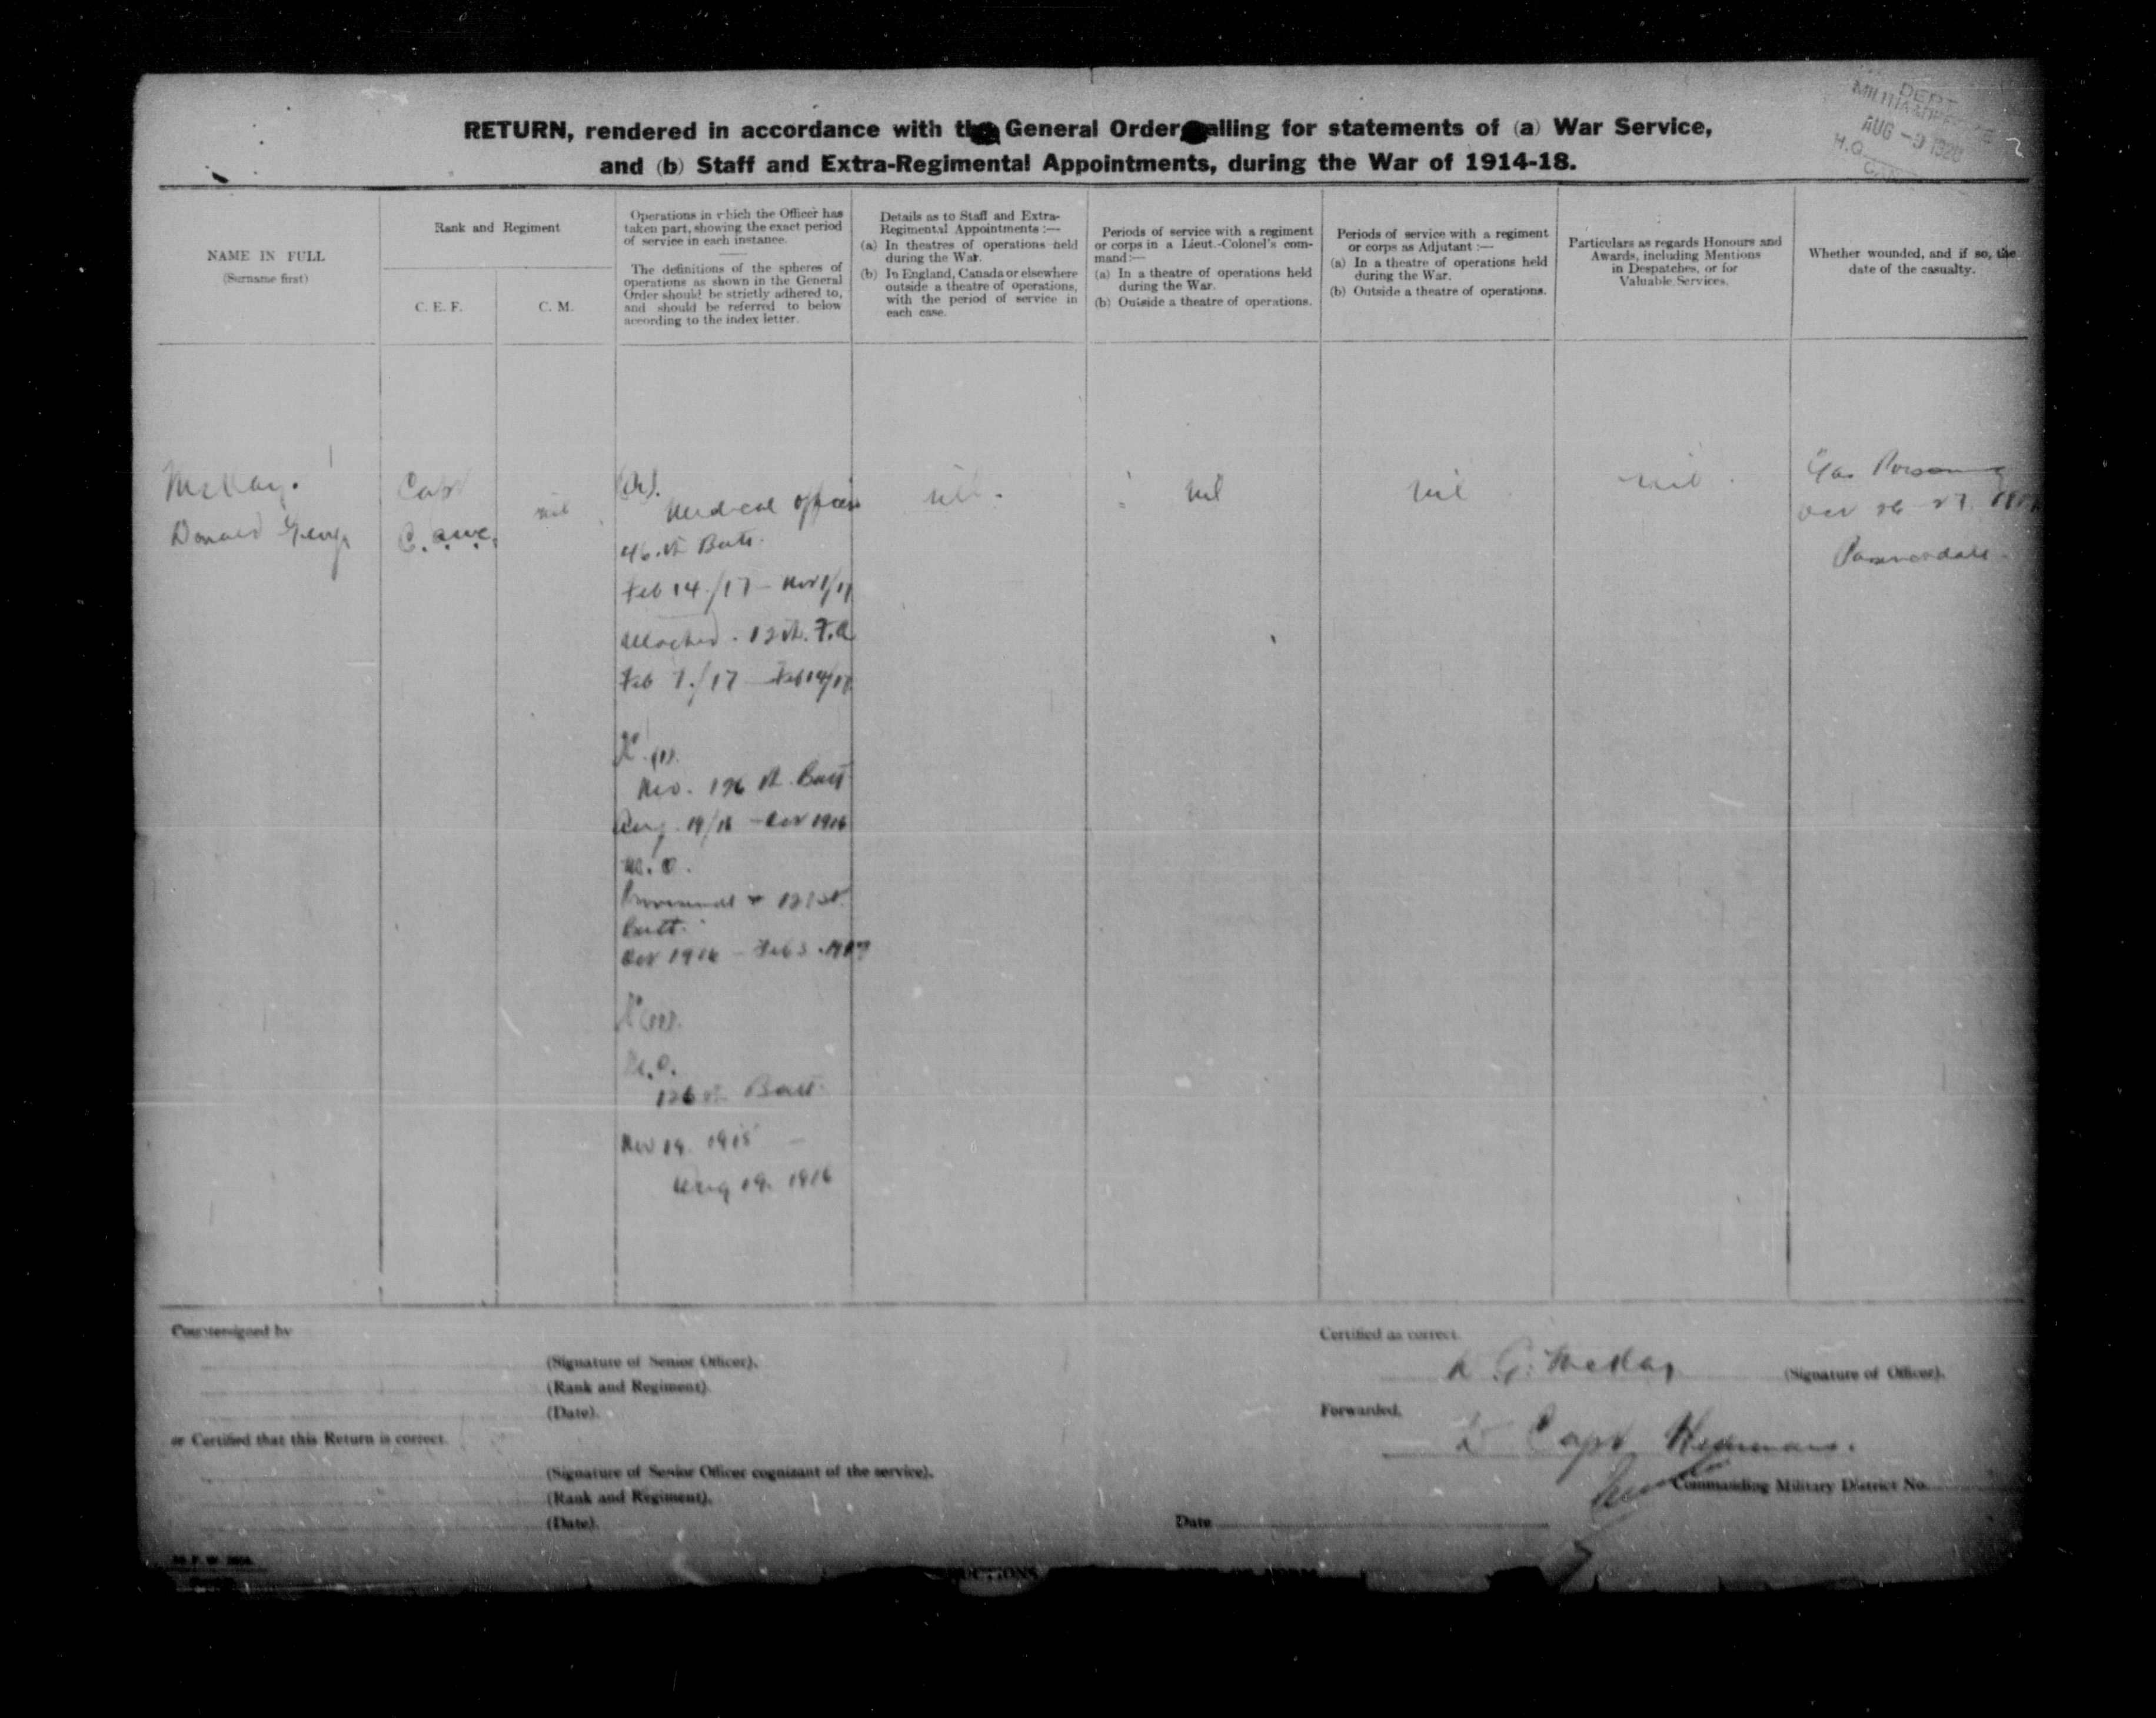 DEPT
MILITIA & DEFENCE
AUG -9 1920
H.Q.
CAN
2
RETURN, rendered in accordance with the General Order calling for statements of (a) War Service,
and (b) Staff and Extra-Regimental Appointments, during the War of 1914-18.
NAME IN FULL
(Surname first)
Rank and Regiment
C. E. F.
C. M.
Operations in which the Officer has
taken part, showing the exact period
of service in each instance.
The definitions of the spheres of
operations as shown in the General
Order should be strictly adhered to,
and should be referred to below
according to the index letter.
Details as to Staff and Extra-
Regimental Appointments :—
(a) In theatres of operations held
during the War.
(b) In England, Canada or elsewhere
outside a theatre of operations,
with the period of service in
each case.
Periods of service with a regiment
or corps in a Lieut.-Colonel's com-
mand:—
(a) In a theatre of operations held
during the War.
(b) Outside a theatre of operations.
Periods of service with a regiment
or corps as Adjutant :—
(a) In a theatre of operations held
during the War.
(b) Outside a theatre of operations.
Particulars as regards Honours and
Awards, including Mentions
in Despatches, or for
Valuable Services.
Whether wounded, and if so, the
date of the casualty.
McKay.
Donald George
Capt
C. A.M.C.
nil
Medical Officer
46.th Batt.
Feb 14./17 - Nov 1/17
attached . 12th. F.A
Feb 7./17 - Feb 14/17
Batt
Aug. 19/16 - Oct 1916
M. O.
Batt.
Oct 1916 - Feb 3. 1917
M.O.
126th Batt.
Nov 19. 1915 -
Aug 19. 1916
nil.
nil
nil
nil.
Gas Poisoning
Oct 26-27. 1917
Passchendaele
Countersigned by
(Signature of Senior Officer).
(Rank and Regiment).
(Date).
or Certified that this Return is correct.
(Signature of Senior Officer cognizant of the service).
(Rank and Regiment).
(Date).
Certified as correct.
D. G. McKay
(Signature of Officer).
Forwarded.
Capt
Commanding Military District No.
Date